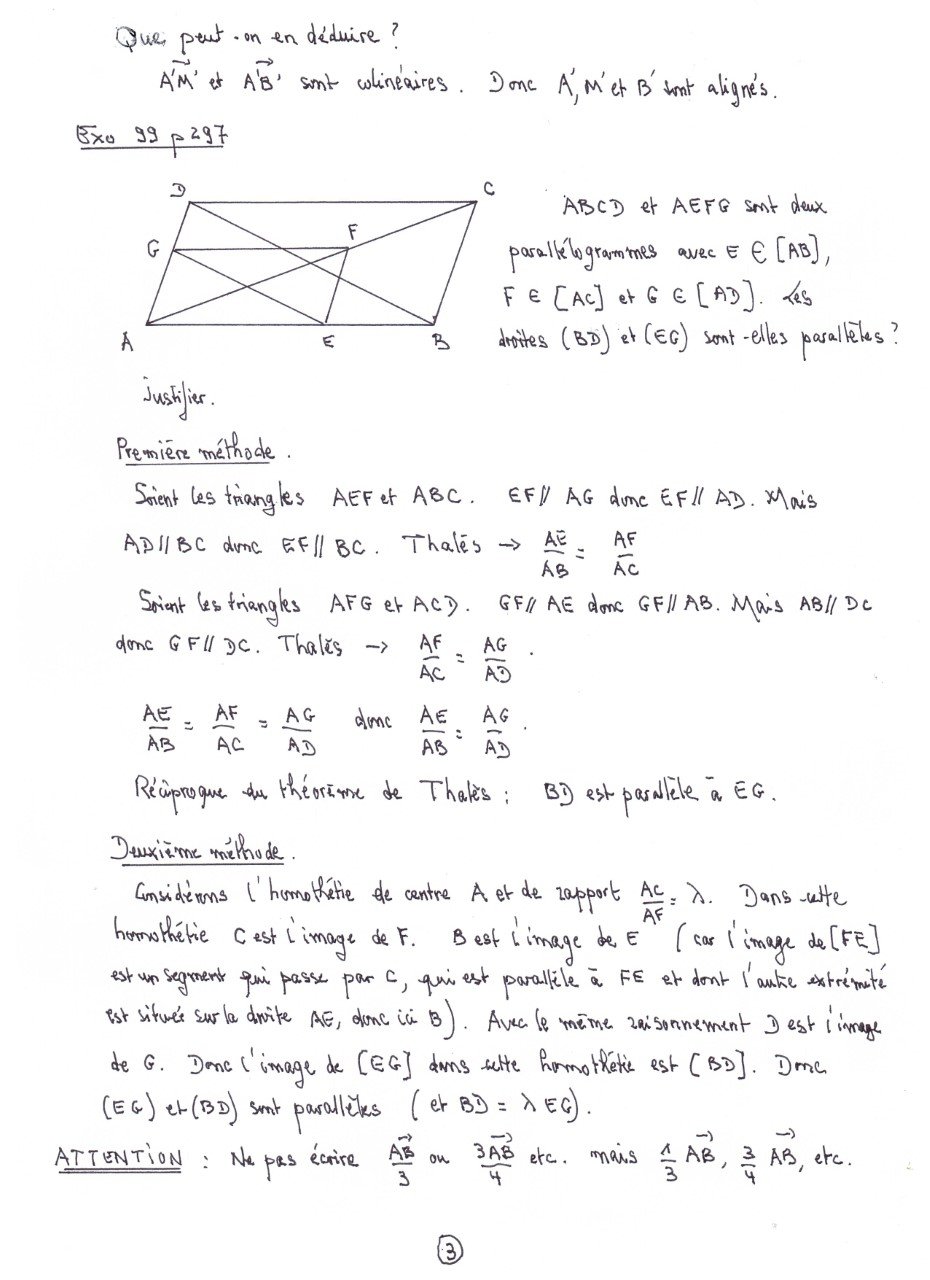 Que peut-on en déduire ?
A'M' et A'B' sont colinéaires. Donc A', M' et B' sont alignés.
Exo 99 p 297
D
C
G
F
A
E
B
ABCD et AEFG sont deux
parallélogrammes avec E ∈ [AB],
F ∈ [AC] et G ∈ [AD]. Les
droites (BD) et (EG) sont-elles parallèles ?
Justifier.
Première méthode.
Soient les triangles AEF et ABC. EF // AG donc EF // AD. Mais
AD // BC donc EF // BC. Thalès → AE/AB = AF/AC
Soient les triangles AFG et ACD. GF // AE donc GF // AB. Mais AB // DC
donc GF // DC. Thalès → AF/AC = AG/AD.
AE/AB = AF/AC = AG/AD donc AE/AB = AG/AD.
Réciproque du théorème de Thalès : BD est parallèle à EG.
Deuxième méthode.
Considérons l'homothétie de centre A et de rapport AC/AF = λ. Dans cette
homothétie C est l'image de F. B est l'image de E (car l'image de [FE]
est un segment qui passe par C, qui est parallèle à FE et dont l'autre extrémité
est située sur la droite AE, donc ici B). Avec le même raisonnement D est l'image
de G. Donc l'image de [EG] dans cette homothétie est [BD]. Donc
(EG) et (BD) sont parallèles (et BD = λ EG).
ATTENTION : Ne pas écrire AB→/3 ou 3AB→/4 etc. mais 1/3 AB→, 3/4 AB→, etc.
3